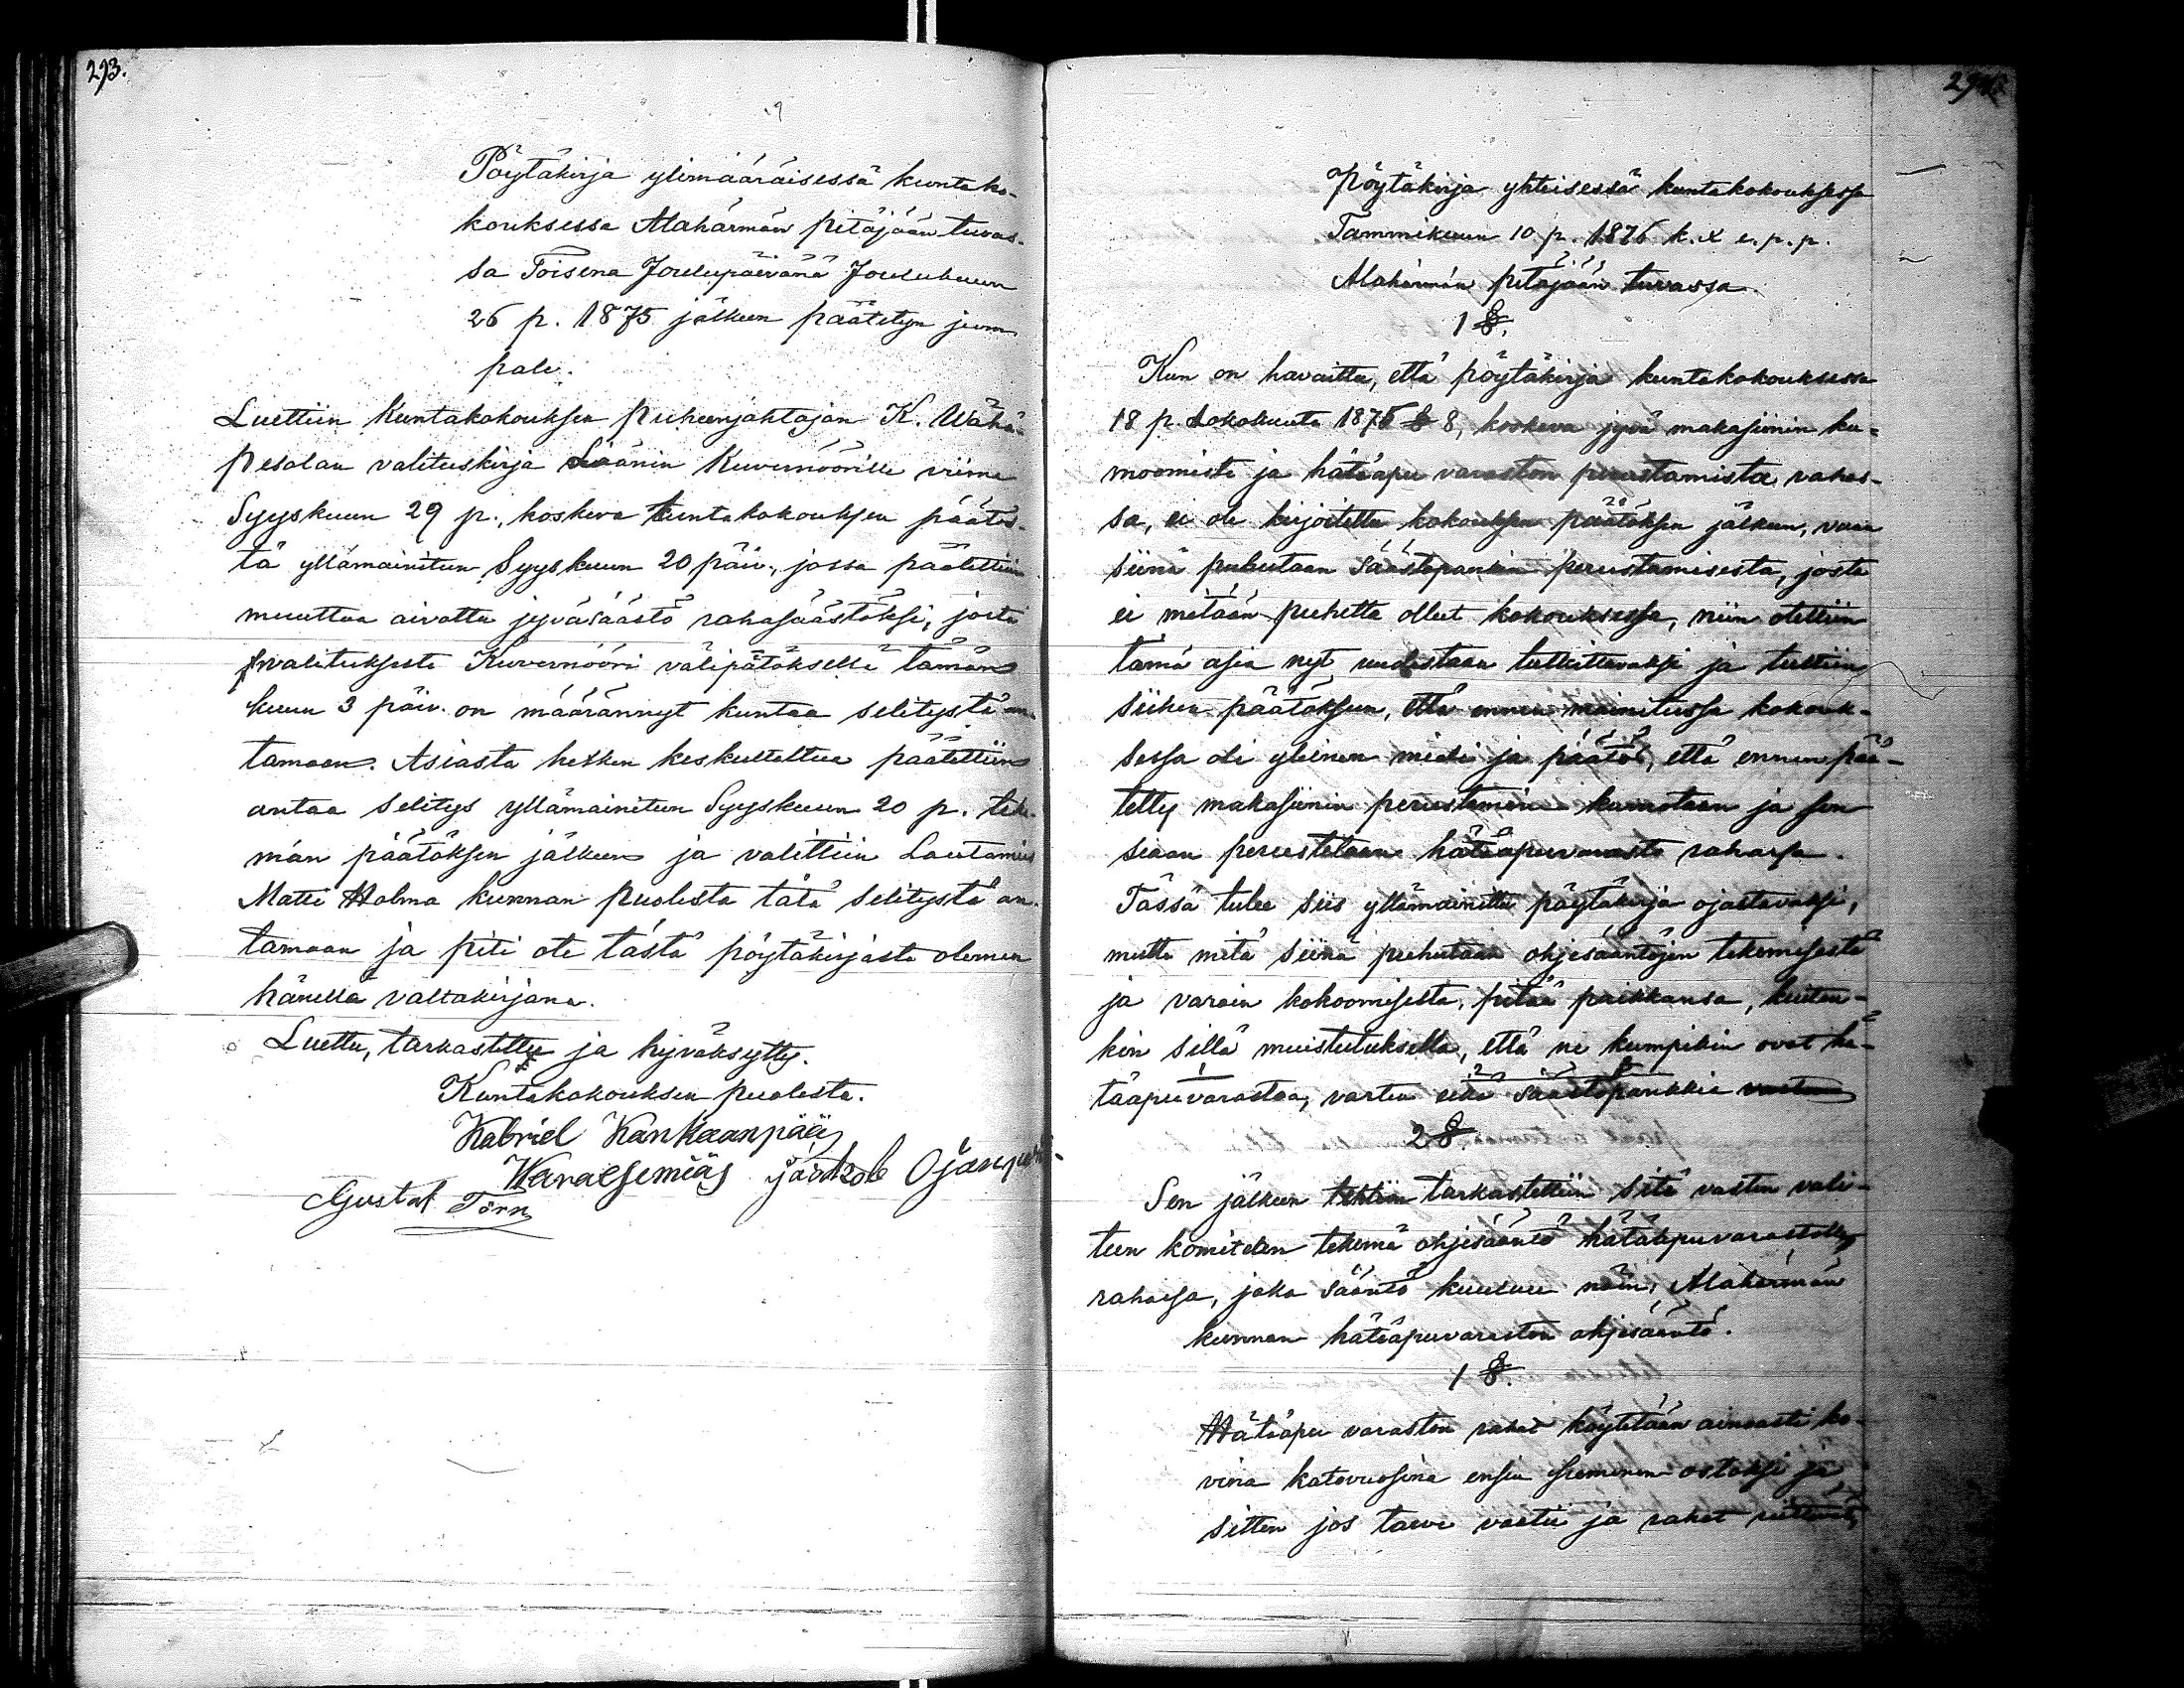 293.
Pöytäkirja ylimääräisessä kuntako-
kouksessa Alahärmän pitäjään tuvas-
sa Toisena Joulupäivänä Joulukuun
26 p. 1875 jälkeen päätetyn jum
palv.
Luettiin Kuntakokouksen puheenjohtajan K. Wähä-
pesolan valituskirja Läänin Kuvernöörille viime
Syyskuun 29 p., koskeva kuntakokouksen päätös-
tä yllämainitun Syyskuun 20 päiv., jossa päätettiin
muuttaa aivottu jyväsäästö rahasäästöksi, josta
valituksesta Kuvernööri välipätöksellä tämän
kuun 3 päiv. on määrännyt kuntaa selitystä an-
tamaan. Asiasta hetken keskusteltua päätettiin
antaa selitys yllämainitun Syyskuun 20 p. teh-
män päätöksen jälkeen ja valittiin Lautamies
Matti Holma kunnan puolesta tätä selitystä an-
tamaan ja piti ote tästä pöytäkirjasta oleman
hänellä valtakirjana.
Luettu, tarkastettu ja hyväksytty.
Kuntakokouksen puolesta.
Kabriel Kankaanpää
Jaakob Ojanperä
Gustaf Törn
Pöytäkirja yhteisessä kuntakokouksessa
Tammikuun 10 p. 1876 k. x e. p. p.
Alahärmän pitäjään tuvassa.
1 §.
Kun on havaittu, että pöytäkirja kuntakokouksessa
18 p. Lokakuuta 1875 § 8, koskeva jyvä makasiinin ku-
moomista ja hätäapu varaston perustamista rahas-
sa, ei ole kirjoitettu kokouksen päätöksen jälkeen, vaan
siinä puhutaan säästöpankin perustamisesta, josta
ei mitään puhetta ollut kokouksessa, niin otettiin
tämä asia nyt uudestaan tutkittavaksi ja tultiin
siihen päätökseen, että ennen mainitussa kokouk-
sessa oli yleinen mieli ja päätös, että ennen pää-
tetty makasiinin perustaminen kumotaan ja sen
siaan perustetaan hätäapuvarasto rahassa.
Tässä tulee siis yllämainittu pöytäkirja ojastavaksi,
mutta mitä siinä puhutaan ohjesääntöjen tekemisestä
ja varain kokoomisesta, pitää paikkansa, kuiten-
kin sillä muistutuksella, että ne kumpikin ovat hä-
täapuvarastoa, varten eikä säästöpankkia varten
2 §.
Sen jälkeen tehtiin tarkastettiin sitä vasten vali-
tun komitean tekemä ohjesääntö hätäapuvarastolle
rahassa, joka sääntö kuuluu näin, Alahärmän
kunnan hätäapuvaraston ohjesääntö.
1 §.
Hätäapu varaston rahat käytetään ainoasti ko-
vina katovuosina ensin siemenen ostoksi ja
sitten jos tarve vaatii ja rahat riittävät,